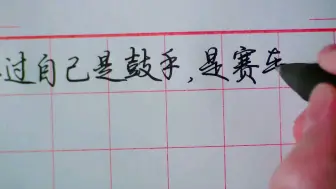 过自己是鼓手,是赛车